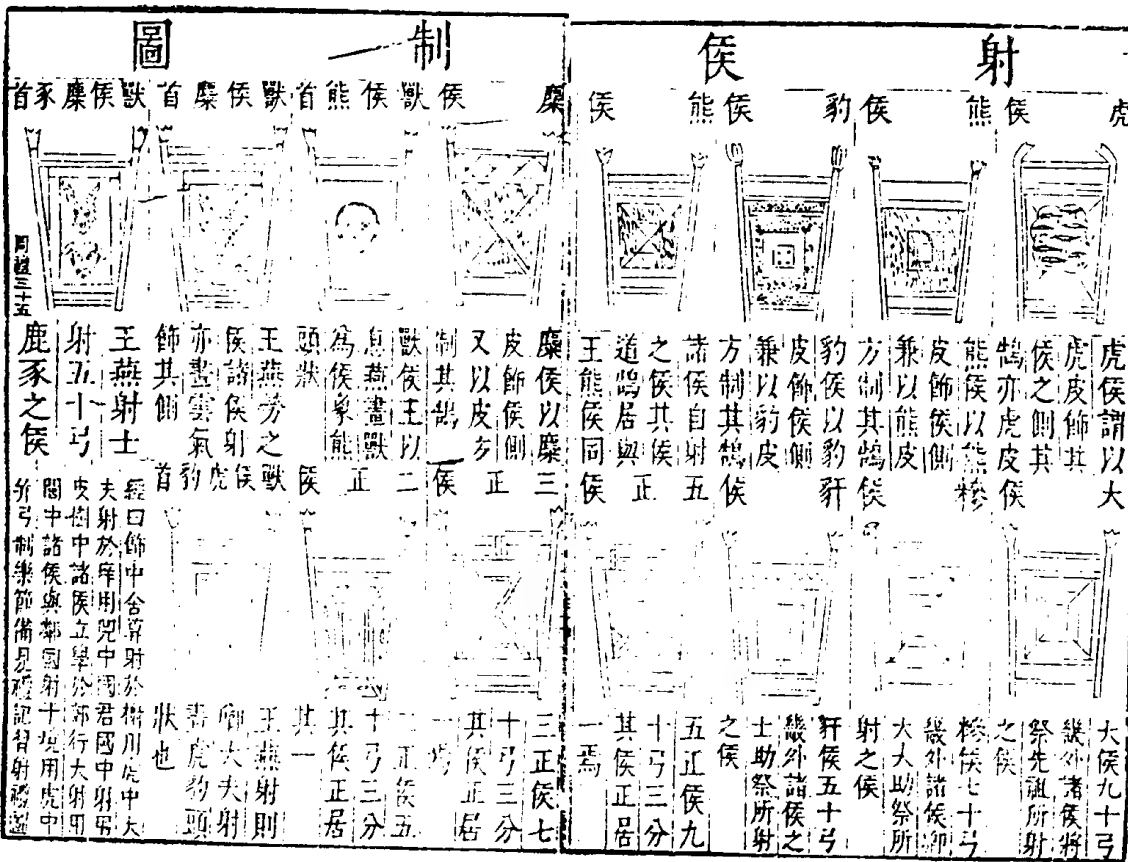 射侯制圖
虎侯
熊侯
豹侯
熊侯
麋侯
獸侯熊首
獸侯麋首
獸侯麋豕首
周禮三十五
虎侯謂以大
虎皮飾其
侯之側其
鵠亦虎皮
熊侯以熊
皮飾侯側
兼以熊皮
方制其鵠
豹侯以豹
皮飾侯側
兼以豹皮
方制其鵠
諸侯自射
之侯其侯
道鵠居與
王熊侯同
麋侯以麋
皮飾侯側
又以皮方
制其鵠
獸侯王以
息燕畫獸
為侯象熊
頭狀
王燕勞之
侯諸侯射
亦畫雲氣
飾其側
王燕射士
射五十弓
鹿豕之侯
大侯
糝侯
豻侯
五正侯
三正侯
二正侯
獸侯虎豹首
大侯九十弓
畿外諸侯將
祭先祖所射
之侯
糝侯七十弓
畿外諸侯卿
大夫助祭所
射之侯
豻侯五十弓
畿外諸侯之
士助祭所射
之侯
五正侯九
十弓三分
其侯正居
一焉
三正侯七
十弓三分
其侯正居
一焉
二正侯五
十弓三分
其侯正居
其一
王燕射則
卿大夫射
畫虎豹頭
狀也
經曰飾中舍算射於榭用虎中大
夫射於庠用兕中國君國中射用
皮樹中諸侯立學於郊行大射用
閭中諸侯與鄰國射于境用虎中
弓制樂節備見禮記習射禮